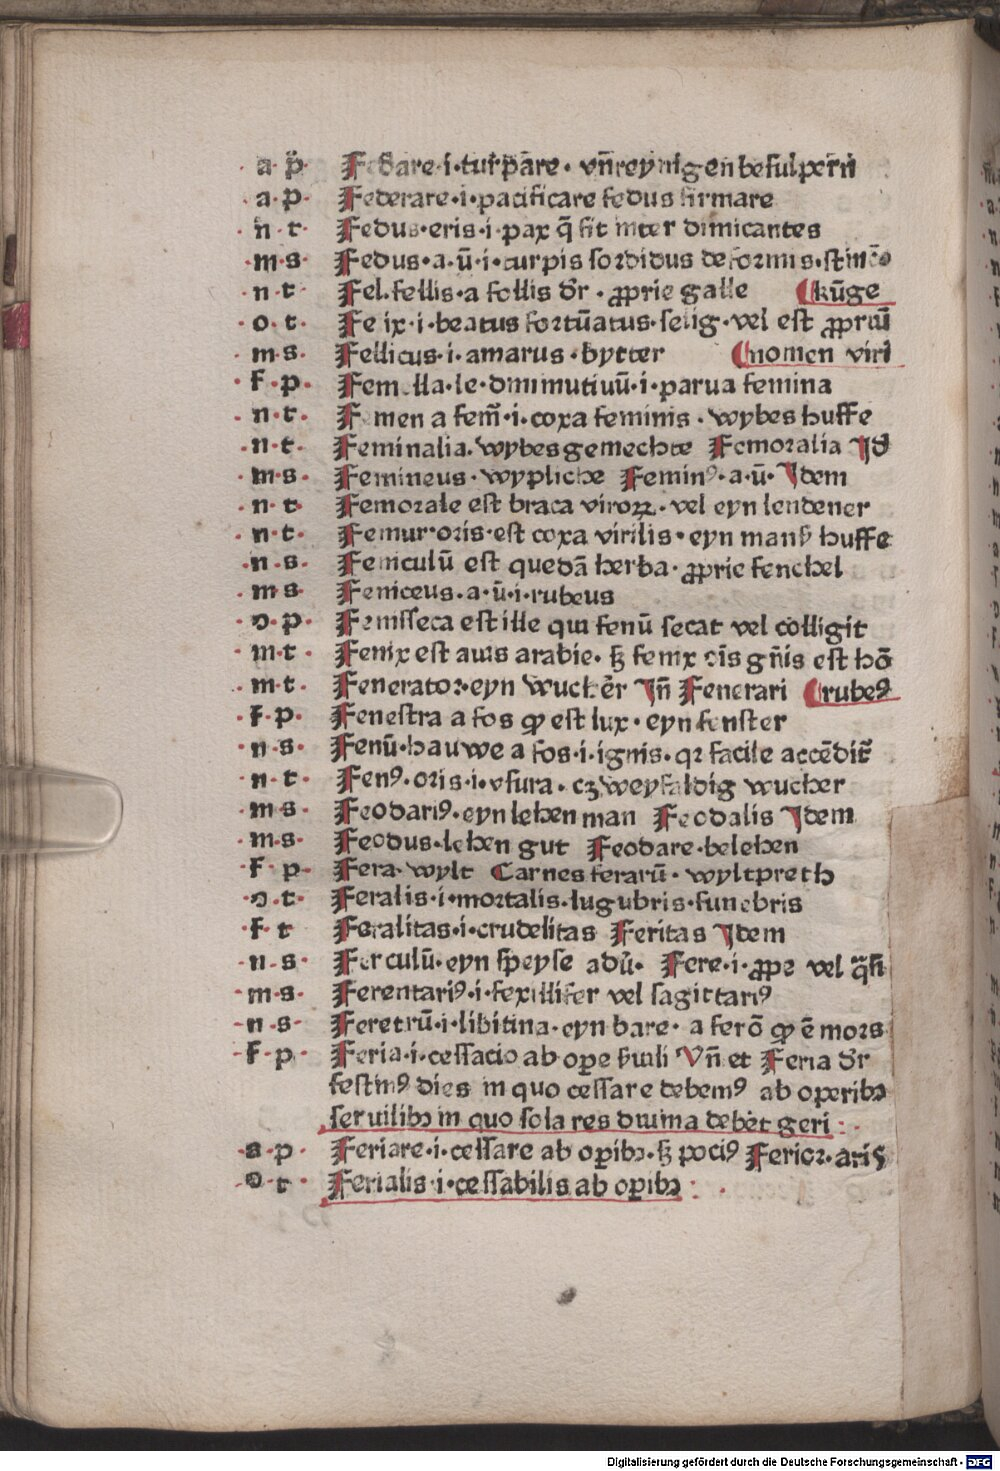 ·a·p̄· Fedare·i·turpare· vn̄reynigen besulpern
·a·p· Federare·i·pacificare fedus firmare
·n·t· Fedus·eris·i·pax q̄ fit inter dimicantes
·m·s· Fedus·a·ū·i·turpis sordidus deformis·
·n·t· Fel·fellis·a follis dr̄·ꝓprie galle ⸿kūge
·o·t· Felix·i·beatus fortūatus·selig·vel est ꝓpriū
·m·s· Fellicus·i·amarus·bytter ⸿nomen viri
·f·p· Femella·le·diminutiuū·i·parua femina
·n·t· Femen a fem̄·i·coxa feminis·wybes huffe
·n·t· Feminalia·wybes gemechte Femoralia Id̄
·m·s· Femineus·wypliche Femin⁹·a·ū·Idem
·n·t· Femorale est braca viroꝝ·vel eyn lendener
·n·t· Femur·oris·est coxa virilis·eyn mans̄ huffe
·n·s· Feniculū est quedā herba·ꝓprie fenchel
·m·s· Feniceus·a·ū·i·rubeus
·o·p· Fenisseca est ille qui fenū secat vel colligit
·m·t· Fenix est auis arabie·sꝫ fenix oīs gn̄is est hō
·m·t· Fenerator·eyn wucher̄ Jn̄ Fenerari ⸿rube⁹
·f·p· Fenestra a fos ꝙ est lux·eyn fenster
·n·s· Fenū·hauwe a fos·i·ignis·qꝛ facile accēdit̄
·n·t· Fen⁹·oris·i·vsura·czweyfaldig wucher
·m·s· Feodari⁹·eyn lehen man Feodalis Idem
·m·s· Feodus·lehen gut Feodare·belehen
·f·p· Fera·wylt Carnes ferarū·wyltpreth
·o·t· Feralis·i·mortalis·lugubris·funebris
·f·t· Feralitas·i·crudelitas Feritas Idem
·n·s· Ferculū·eyn speyse adū· Fere·i·ꝓpe vel q̄si
·m·s· Ferentari⁹·i·fexillifer vel sagittari⁹
·n·s· Feretrū·i·libitina·eyn bare·a ferō ꝙ ē mors
·f·p· Feria·i·cessacio ab oꝑe s̄uili Vn̄ et Feria dr̄
festin⁹ dies in quo cessare debem⁹ ab operibꝫ
seruilibꝫ in quo sola res diuina debet geri:·
·a·p· Feriare·i·cessare ab oꝑibꝫ·sꝫ poci⁹ Ferior·aris
·o·t· Ferialis·i·cessabilis ab oꝑibꝫ:·
Digitalisierung gefördert durch die Deutsche Forschungsgemeinschaft - DFG